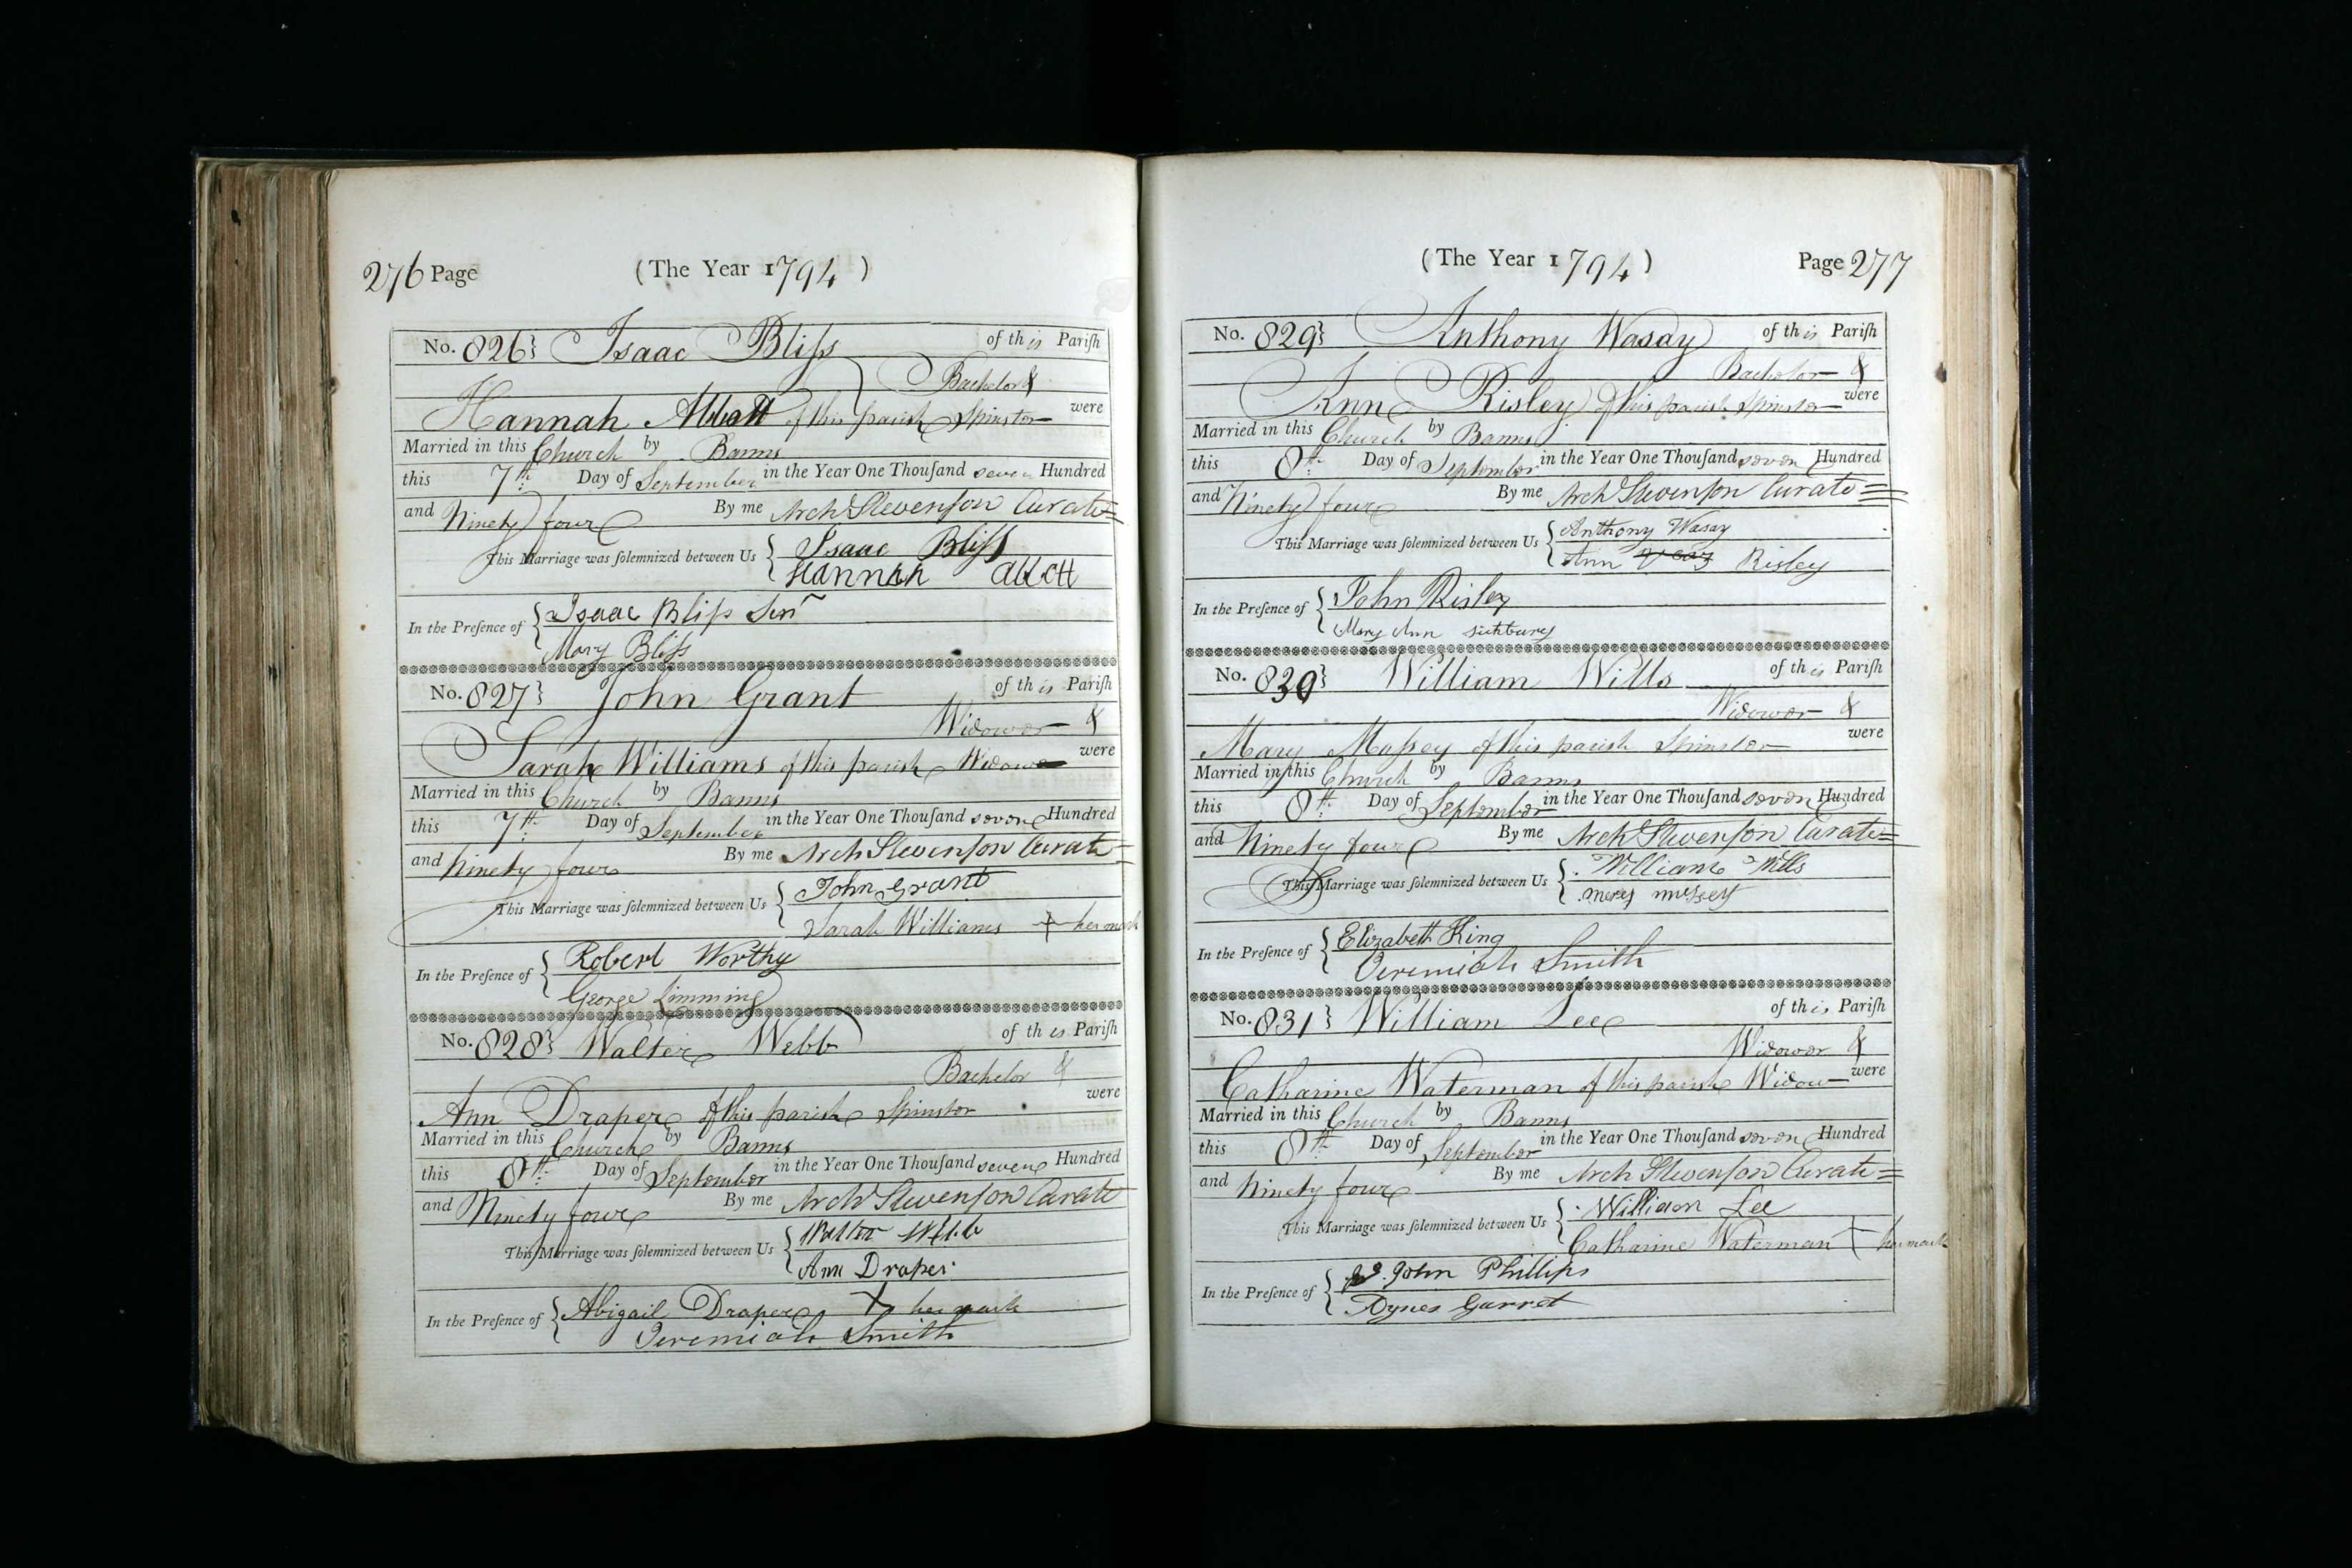 276 Page (The Year 1794)
No. 826} Isaac Bliſs of this Pariſh
Bachelor &
Hannah Abbott of this parish Spinster were
Married in this Church by Banns
this 7th Day of September in the Year One Thouſand seven Hundred
and Ninety four By me Arch Stevenſon Curate
This Marriage was ſolemnized between Us { Isaac Bliſs
Hannah Abbott
In the Preſence of { Isaac Bliſs Senr
Mary Bliſs
No. 827} John Grant of this Pariſh
Widower &
Sarah Williams of this parish Widow were
Married in this Church by Banns
this 7th Day of September in the Year One Thouſand seven Hundred
and Ninety four By me Arch Stevenſon Curate
This Marriage was ſolemnized between Us { John Grant
Sarah Williams + her mark
In the Preſence of { Robert Worthy
George Limming
No. 828} Walter Webb of this Pariſh
Bachelor &
Ann Draper of this parish Spinster were
Married in this Church by Banns
this 8th Day of September in the Year One Thouſand seven Hundred
and Ninety four By me Arch Stevenſon Curate
This Marriage was ſolemnized between Us { Walter Webb
Ann Draper
In the Preſence of { Abigail Draper X her mark
Jeremiah Smith
(The Year 1794) Page 277
No. 829} Anthony Wasay of this Pariſh
Bachelor &
Ann Risley of this parish Spinster were
Married in this Church by Banns
this 8th Day of September in the Year One Thouſand seven Hundred
and Ninety four By me Arch Stevenſon Curate
This Marriage was ſolemnized between Us { Anthony Wasay
Ann Risley
In the Preſence of { John Risley
Mary Ann
No. 830} William Wills of this Pariſh
Widower &
Mary Maſsey of this parish Spinster were
Married in this Church by Banns
this 8th Day of September in the Year One Thouſand seven Hundred
and Ninety four By me Arch Stevenſon Curate
This Marriage was ſolemnized between Us { William Wills
In the Preſence of { Elizabeth King
Jeremiah Smith
No. 831} William Lee of this Pariſh
Widower &
Catharine Waterman of this parish Widow were
Married in this Church by Banns
this 8th Day of September in the Year One Thouſand seven Hundred
and Ninety four By me Arch Stevenſon Curate
This Marriage was ſolemnized between Us { William Lee
Catharine Waterman + her mark
In the Preſence of { John Phillips
Dynes Garret